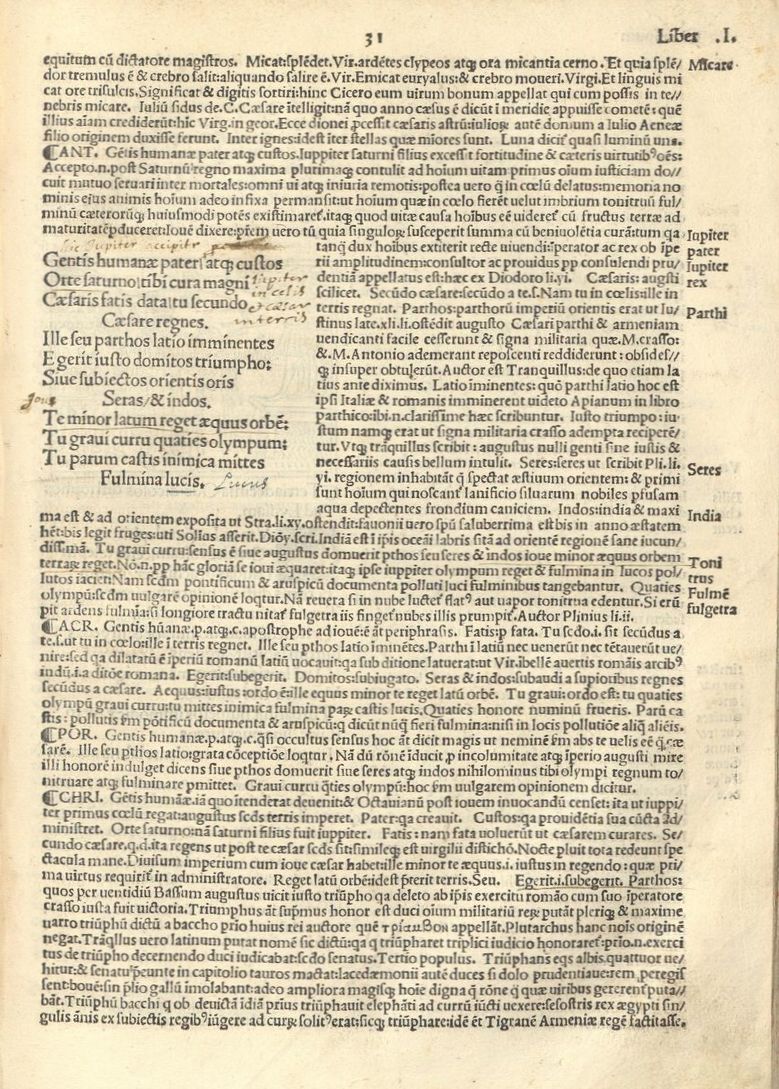 31
Liber .I.
equitum cū dictatore magistros. Micat:splēdet.Vir.ardētes clypeos atq; æra micantia cerno. Et quia splē/
Micare
dor tremulus ē & crebro salit:aliquando salire ē.Vir.Emicat euryalus:& crebro moueri.Virgi.Et linguis mi
cat ore trisulcis.Significat & digitis sortiri:hinc Cicero eum uirum bonum appellat qui cum possis in te//
nebris micare. Iuliū sidus de.C.Cæsare ītelligit:nā quo anno cæsus ē dicūt ī meridie appuisse cometē: quē
illius aīam crediderūt:hic Virg.in geor.Ecce dionei ꝓcessit cæsaris astrū:iulioꝝ autē domum a Iulio Aeneæ
filio originem duxisse ferunt. Inter ignes:idest īter stellas quæ mīores sunt. Luna dicit quasi luminū una.
¶CANT. Gētis humanæ pater atq; custos.Iuppiter saturni filius excessit fortitudine & cæteris uirtutibꝰ oēs:
Accepto.n.post Saturnū regno maxima plurimaq; contulit ad hoium uitam:primus oium iusticiam do//
cuit mutuo seruari inter mortales:omni ui atq; iniuria remotis:postea uero q̄ in cœlū delatus:memoria no
minis eius animis hoium adeo infixa permansit:ut hoium quæ in cœlo fierēt uelut imbrium tonitruū ful/
minū cæterorūq; huiusmodi potēs existimaret.itaq; quod uitæ causa hoibus eē uideret cū fructus terræ ad
maturitatē ꝑduceret:Ioue dixere:prēm uero tū quia singuloꝝ susceperit summa cū beniuolētia curā:tum qa
Iupiter
pater
tanq̄ dux hoibus extiterit recte uiuendi:īperator ac rex ob īpe
rii amplitudinem:consultor ac prouidus pp consulendi pru/
Iupiter
rex
dentiā appellatus est:hæc ex Diodoro li.yi. Cæsaris: augusti
scilicet. Secūdo cæsare:secūdo a te.s.Nam tu in cœlis:ille in
terris regnat. Parthos:parthorū imperiū orientis erat ut Iu/
Parthi
stinus late.xli.li.ostēdit augusto Cæsari parthi & armeniam
uendicanti facile cesserunt & signa militaria quæ.M.crasso:
&.M. Antonio ademerant reposcenti reddiderunt: obsides//
q; insuper obtulerūt.Auctor est Tranquillus:de quo etiam la
tius ante diximus. Latio iminentes: quō parthi latio hoc est
ipsi Italiæ & romanis imminerent uideto Apianum in libro
parthico:ibi.n.clarissime hæc scribuntur. Iusto triumpo: iu/
stum namq; erat ut signa militaria crasso adempta reciperē/
tur. Vtq; trāquillus scribit: augustus nulli genti sine iustis &
necessariis causis bellum intulit. Seres:seres ut scribit Pli.li.
Seres
yi. regionem inhabitāt q̄ spectat æstiuum orientem: & primi
sunt hoium qui noscant lanificio siluarum nobiles pfusam
aqua depectentes frondium caniciem. Indos:india & maxi
India
Sic Jupiter accipitr
Gentis humanæ pater/ atq; custos
Orte saturno/ tibi cura magni Jupiter
in celis
Cæsaris fatis data/tu secundo
et cæsar
Cæsare regnes.
in terris
Ille seu parthos latio imminentes
Egerit iusto domitos triumpho:
Siue subiectos orientis oris
Seras/& indos.
Te minor latum reget æquus orbē:
Tu graui curru quaties olympum:
Tu parum castis inimica mittes
Fulmina lucis. Lucus
ma est & ad orientem exposita ut Stra.li.xy.ostendit:fauonii uero spū saluberrima est:bis in anno æstatem
hēt:bis legit fruges:uti Solius asserit.Dioy.scri.Indiā est ī ipsis oceāi labris sitā ad orientē regionē sane iucun/
dissimā. Tu graui curru:sensus ē siue augustus domuerit pthos seu seres & indos ioue minor æquus orbem
terraꝝ reget.Nō.n.pp hāc gloriā se ioui æquaret:itaq; ipse iuppiter olympum reget & fulmina in lucos pol/
Toni
trus
lutos iaciet:Nam scdm pontificum & aruspicū documenta polluti luci fulminibus tangebantur. Quaties
olympū:scdm uulgarē opinionē loqtur. Nā reuera si in nube luctet flatꝰ aut uapor tonitrua edentur.Si erū
Fulmē
fulgetra
pit ardens fulmīa:si longiore tractu nitat fulgetra iis finget nubes illis prumpit.Auctor Plinius li.ii.
¶ACR. Gentis hūanæ.p.atq;.c.apostrophe ad ioue:ē āt periphrasis. Fatis:p fata. Tu scdo.i. sit secūdus a
te.s.ut tu in cœlo:ille ī terris regnet. Ille seu pthos latio iminētes. Parthi ī latiū nec uenerūt nec tētauerūt ue/
nire:sed qa dilatatū ē īperiū romanū latiū uocauit:qa sub ditione latuerat:ut Vir.ibellē auertis romāis arcibꝰ
indū.i.a ditōe romana. Egerit:subegerit. Domitos:subiugato. Seras & indos:subaudi a supioribus regnes
secūdus a cæsare. Aequus:iustus :ordo ē:ille equus minor te reget latū orbē. Tu graui:ordo est: tu quaties
olympū graui curru:tu mittes inimica fulmina paꝝ castis lucis. Quaties honore numinū frueris. Parū ca
stis: pollutis fm pōtificū documenta & aruspicū:q dicūt nūq; fieri fulmina:nisi in locis pollutiōe aliq̄ aliēis.
¶POR. Gentis humanæ.p.atq;.c.qsi occultus sensus hoc āt dicit magis ut neminē fm abs te uelis eē q̄ cæ
sarē. Ille seu pthios latio:grata cōceptiōe loqtur. Nā dū rōnē īducit p incolumitate atq; īperio augusti mire
illi honorē indulget dicens siue pthos domuerit siue seres atq; indos nihilominus tibi olympi regnum to/
nitruare atq; fulminare pmittet. Graui curru q̄ties olympū:hoc fm uulgarem opinionem dicitur.
¶CHRI. Gētis humāæ.iā quo itenderat deuenit:& Octauianū post iouem inuocandū censet: ita ut iuppi/
ter primus cœlū regat:augustus scds terris imperet. Pater:qa creauit. Custos:qa prouidētia sua cūcta ad/
ministret. Orte saturno:nā saturni filius fuit iuppiter. Fatis: nam fata uoluerūt ut cæsarem curares. Se/
cundo cæsare.q.d.ita regens ut post te cæsar scds sit:simileq; est uirgilii distichō.Nocte pluit tota redeunt spe
ctacula mane.Diuisum imperium cum ioue cæsar habet:ille minor te æquus.i. iustus in regendo: quæ pri/
ma uirtus requirit in administratore. Reget latū orbē:idest pterit terris. Seu. Egerit.i.subegerit. Parthos:
quos per uentidiū Bassum augustus uicit iusto triūpho qa deleto ab ipsis exercitu romāo cum suo īperatore
crasso iusta fuit uictoria. Triumphus āt supmus honor est duci oium militariū reꝝ putāt pleriq; & maxime
uarro triūphū dictū a baccho prio huius rei auctore quē τρίαμβον appellāt.Plutarchus hanc nois originē
negat. Trāqllus uero latinum putat nomē sic dictū:qa q triūpharet triplici iudicio honoraret:prio.n.exerci
tus de triūpho decernendo duci iudicabat:scdo senatus. Tertio populus. Triūphans eqs albis quattuor ue/
hitur:& senatu peunte in capitolio tauros mactat:lacedæmonii autē duces si dolo prudentiaue:rem peregis
sent:boue:sin plio gallū imolabant:adeo ampliora magisq; hoie digna q̄ rōne q̄ quæ uiribus gererent puta//
bāt. Triūphū bacchi q ob deuictā īdiā prius triūphauit elephāti ad currū iūcti uexere:sesostris rex ægypti sin/
gulis ānis ex subiectis regibꝰ iūgere ad curꝝ solitꝰ erat:sicq; triūphare:idē ēt Tigranē Armeniæ regē factitasse.